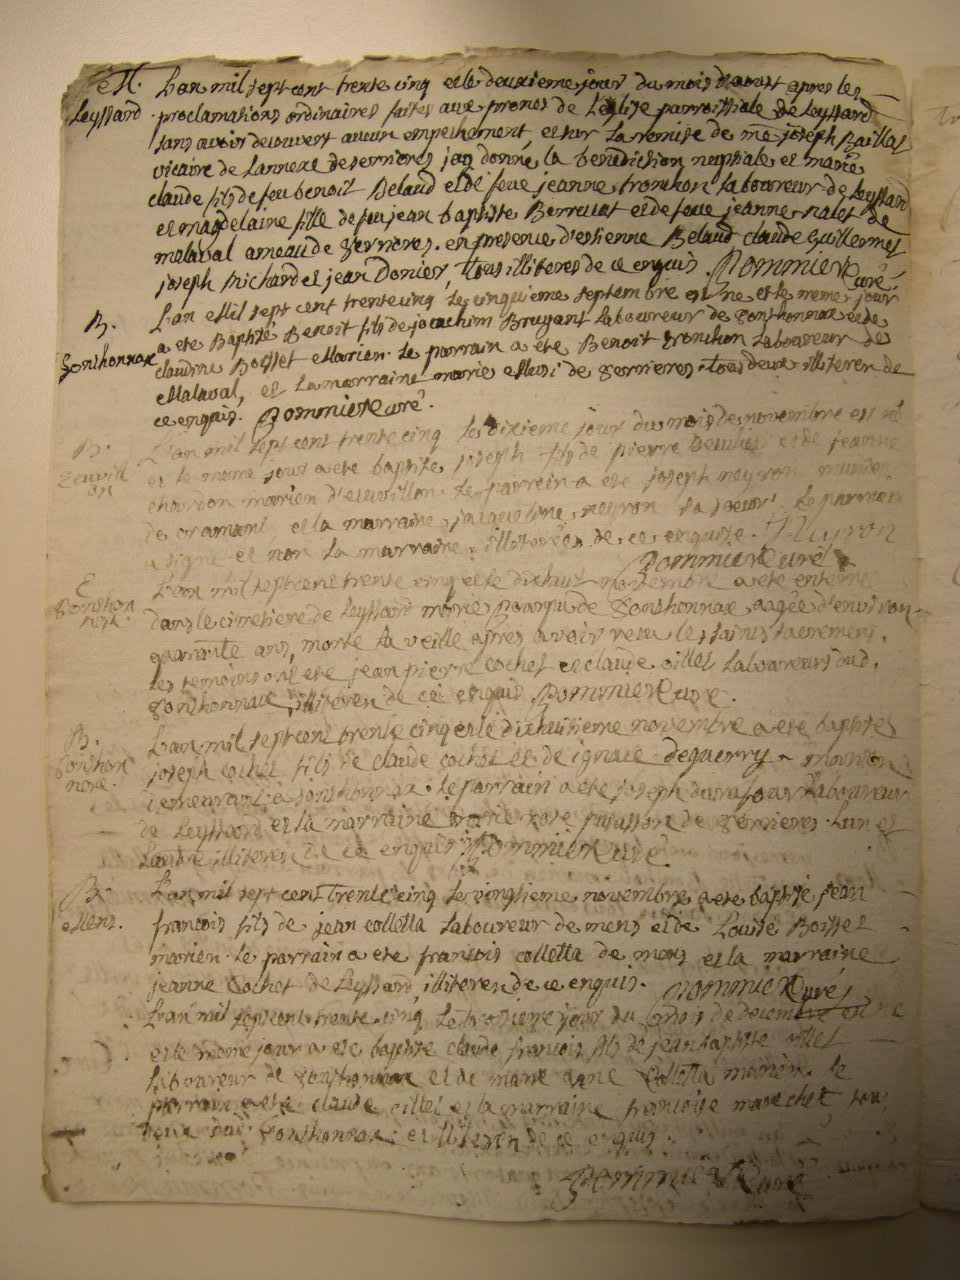 M. L'an mil sept cent trente cinq et le deuxieme jour du mois d'aoust apres les
Leyssard proclamations ordinaires faites aux prones de L'eglise parroissiale de Leyssard
sans avoir decouvert aucun empechement et sur La remise de me joseph Baillat
vicaire de Lannexe de serrieres jay donné la benediction nuptiale et marié
claude fils de feu benoit Belaud et de feue jeanne tronchon Laboureur de Leyssard
et magdelaine fille de feu jean baptiste Berruat et de feue jeanne nalet de
malaval ameau de serrieres. en presence d'estienne Belaud claude Guillermet
joseph Michard et jean Donier, tous illiteres de ce enquis. Pommier curé.
L'an Mil sept cent trente cinq Le cinquieme septembre est ne et le meme jour
B. a ete Baptisé Benoit fils de joachim Brugant Laboureur de Sonthonnax et de
Sonthonnax claudine Bosset Marien. Le parrain a ete Benoit tronchon Laboureur de
Malaval, et La marraine marie de serrieres. tous deux illiteres de
ce enquis. Pommier curé.
B. L'an mil sept cent trente cinq le dixieme jour du mois de novembre est né
et le meme jour a ete baptise joseph fils de pierre et de jeanne
chardon marien d'euvillon. Le parrain a ete joseph neyron
de cramant, et la marraine jaqueline neyron sa soeur. Le parrain
a signe et non La marraine illiterée de ce enquise. Neyron
Pommier curé
E. L'an mil sept cent trente cinq et le dixhuit novembre a ete enterré
Sonthonnax. dans le cimetiere de Leyssard marie de Sonthonnax, agée d'environ
quarante ans, morte La veille apres avoir recu les saints sacremens.
Les temoins ont ete jean pierre cochet et claude oillet Laboureurs dud.
Sonthonnax, illiteres de ce enquis Pommier curé.
B. L'an mil sept cent trente cinq et le dixhuitieme novembre a ete baptisé
Sonthonnax. joseph cochet fils de claude cochet et de ignace deguerry
demeurant a Sonthonnax. Le parrain a ete joseph Laboureur
de Leyssard et la marraine marie de serrieres. L'un et
Lautre illiteres de ce enquis Pommier curé
B. L'an mil sept cent Trente cinq Le vingtieme novembre a ete baptisé jean
Mens. francois fils de jean colletta Laboureur de mens et de Louise Boisset
marien. Le parrain a ete francois colletta de mens et la marraine
jeanne Cochet de Leyssard, illiteres de ce enquis. Pommier curé
L'an mil sept cent trente cinq Le trosieme jour du mois de decembre est ne
et le meme jour a ete baptisé claude francois fils de jean baptiste oillet
Laboureur de Sonthonnax et de marie anne Colletta marien. Le
parrain a ete claude oillet et la marraine francoise marechet tou
deux dud. Sonthonnax et illiteres de ce enquis.
Pommier curé